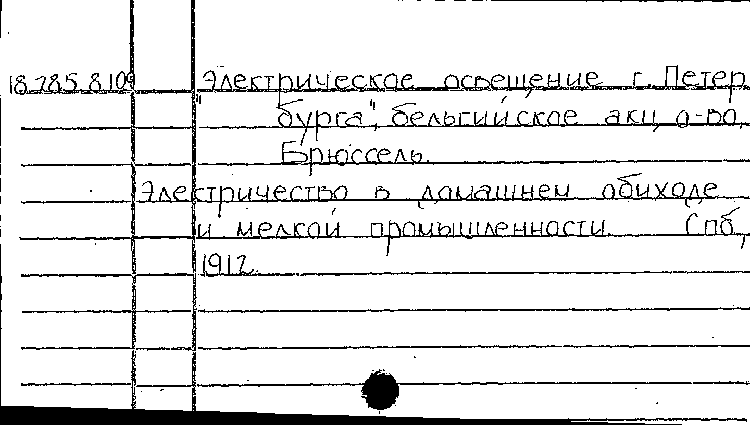 18.785.8.109 Электрическое освещение г. Петер
бурга", бельгийское акц. о-во,
Брюссель.
Электричество в домашнем обиходе
и мелкой промышленности. Спб,
1912.